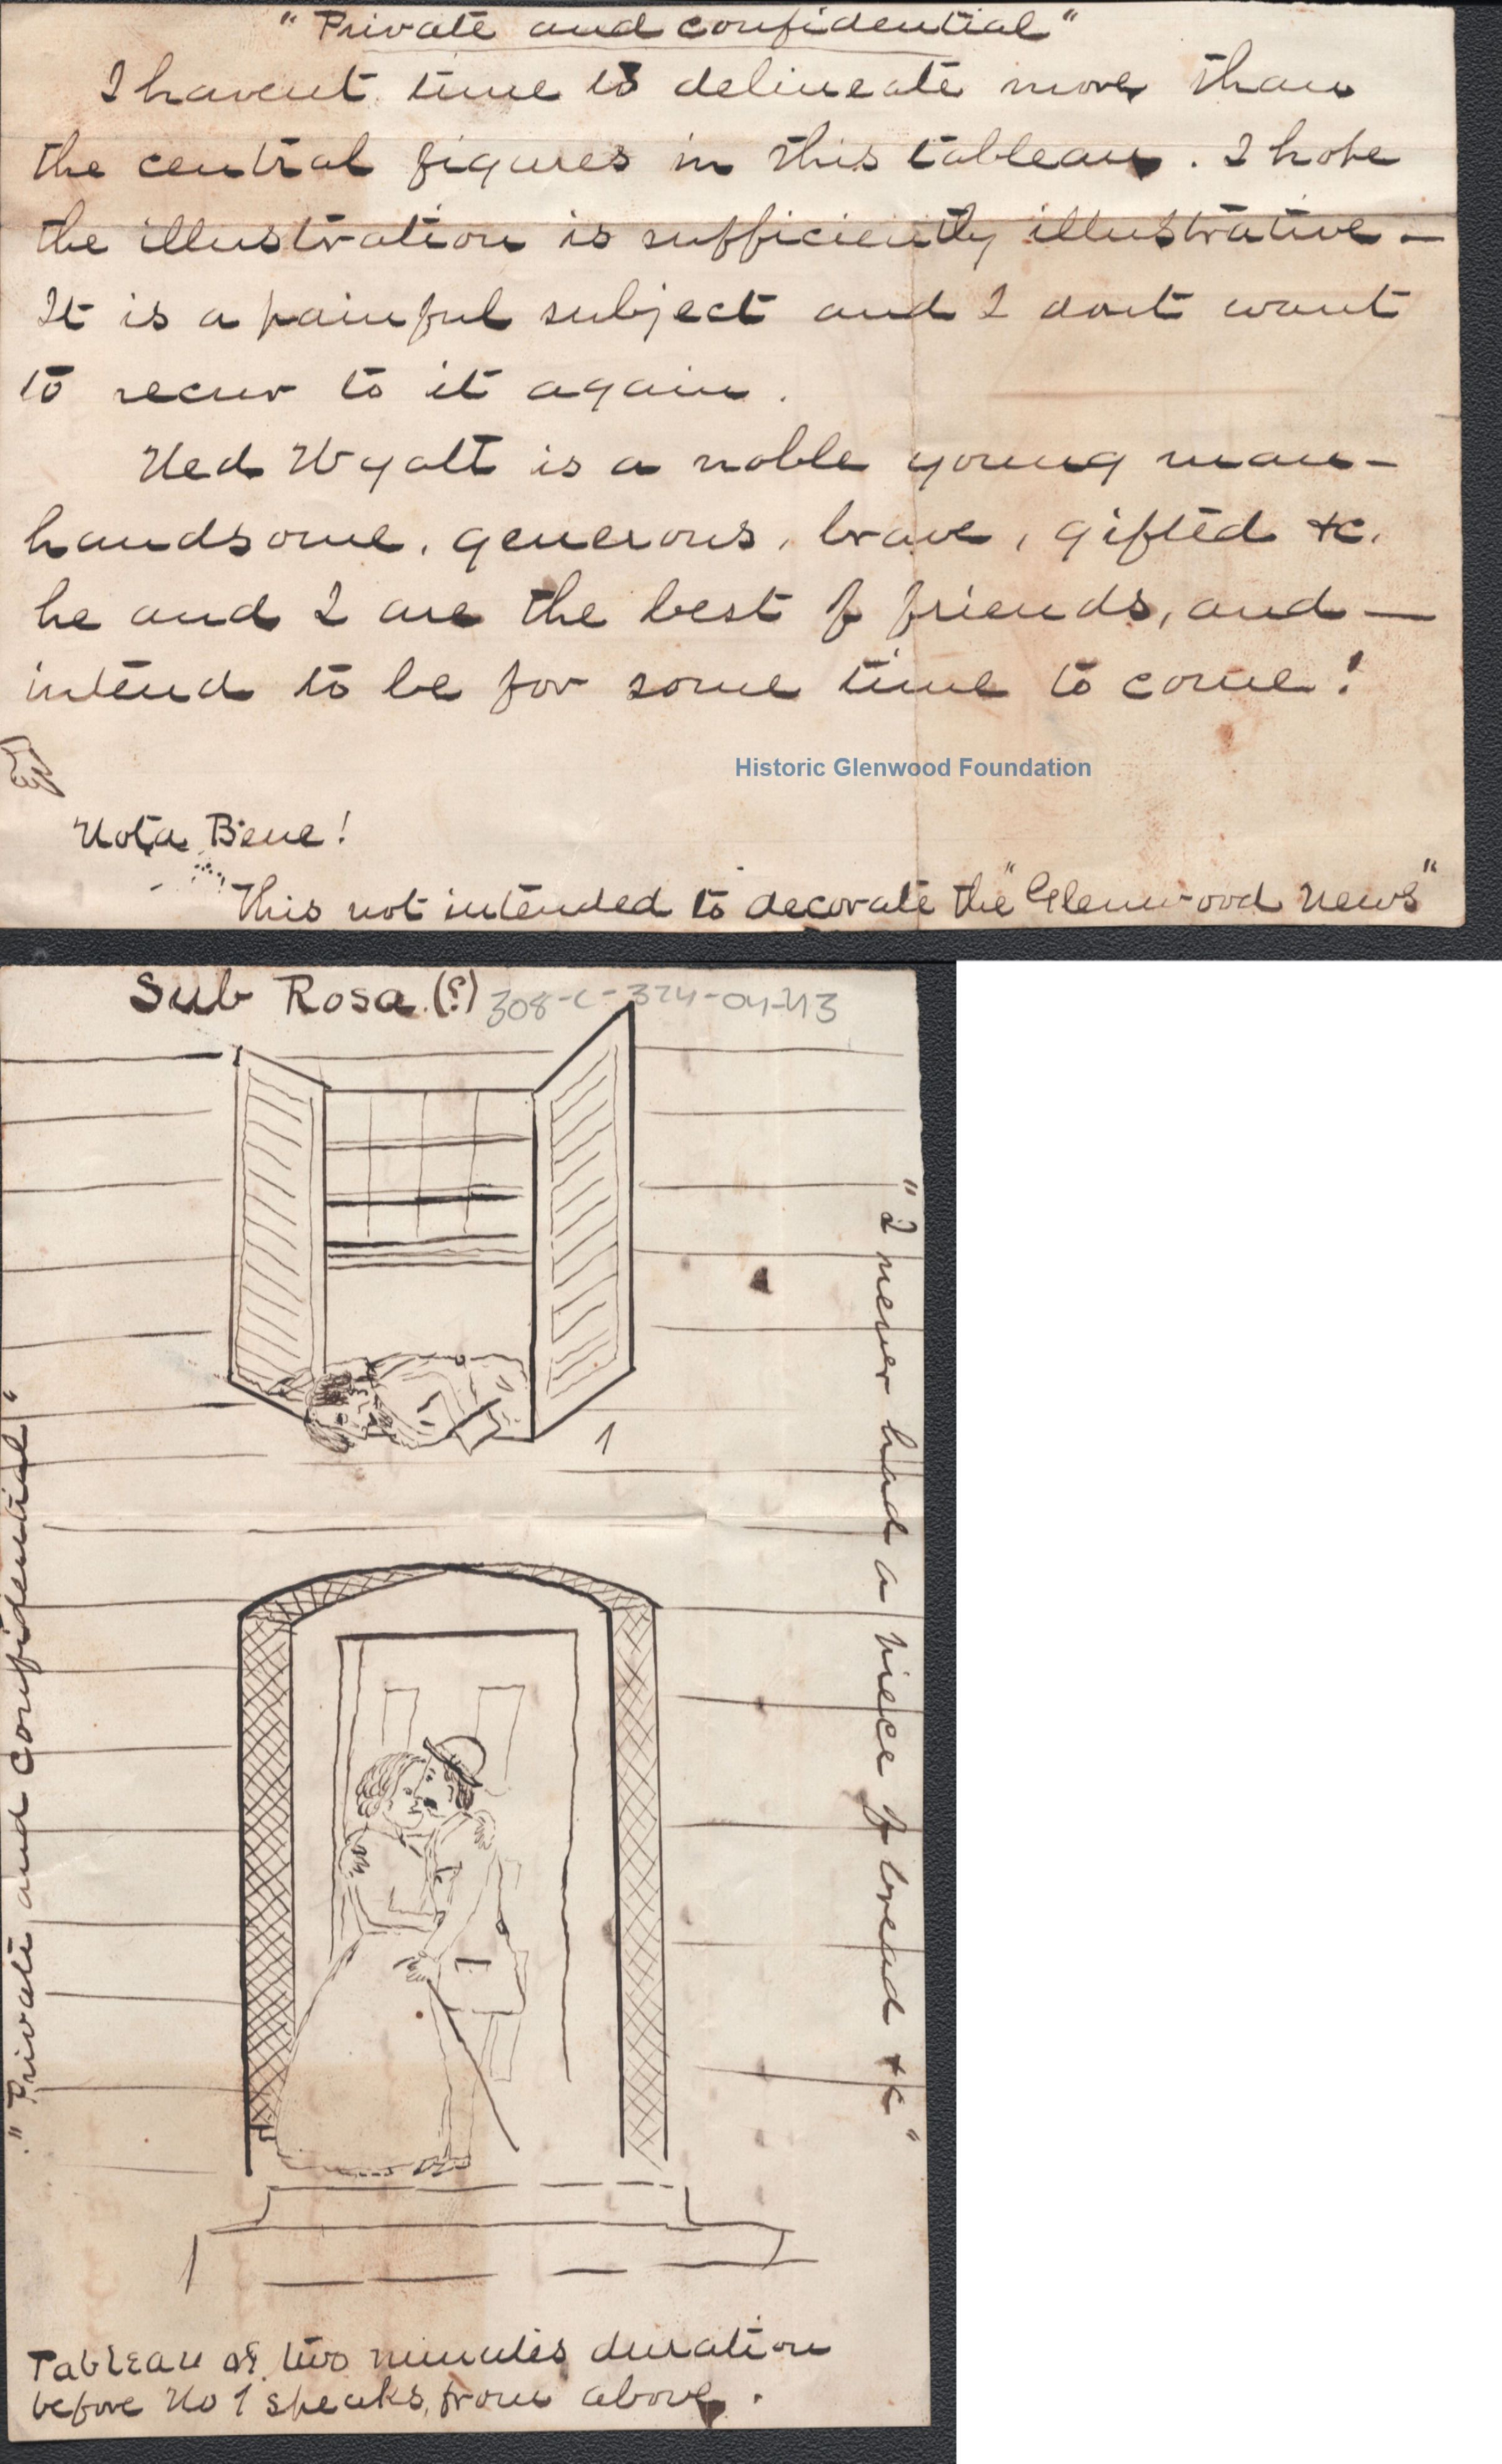 "Private and confidential"
I havent time to delineate more than
the central figures in this tableau. I hope
the illustration is sufficiently illustrative –
It is a painful subject and I dont want
to recur to it again.
Ned Wyatt is a noble young man –
handsome, generous, brave, gifted &c.
he and I are the best of friends, and —
intend to be for some time to come!
Historic Glenwood Foundation
Nota Bene!
This not intended to decorate the "Glenwood News"
Sub Rosa (?)
308-C-324-04-43
"I never had a piece of bread &c"
1
"Private and confidential"
Tableau of two minutes duration
before No 1 speaks, from above.